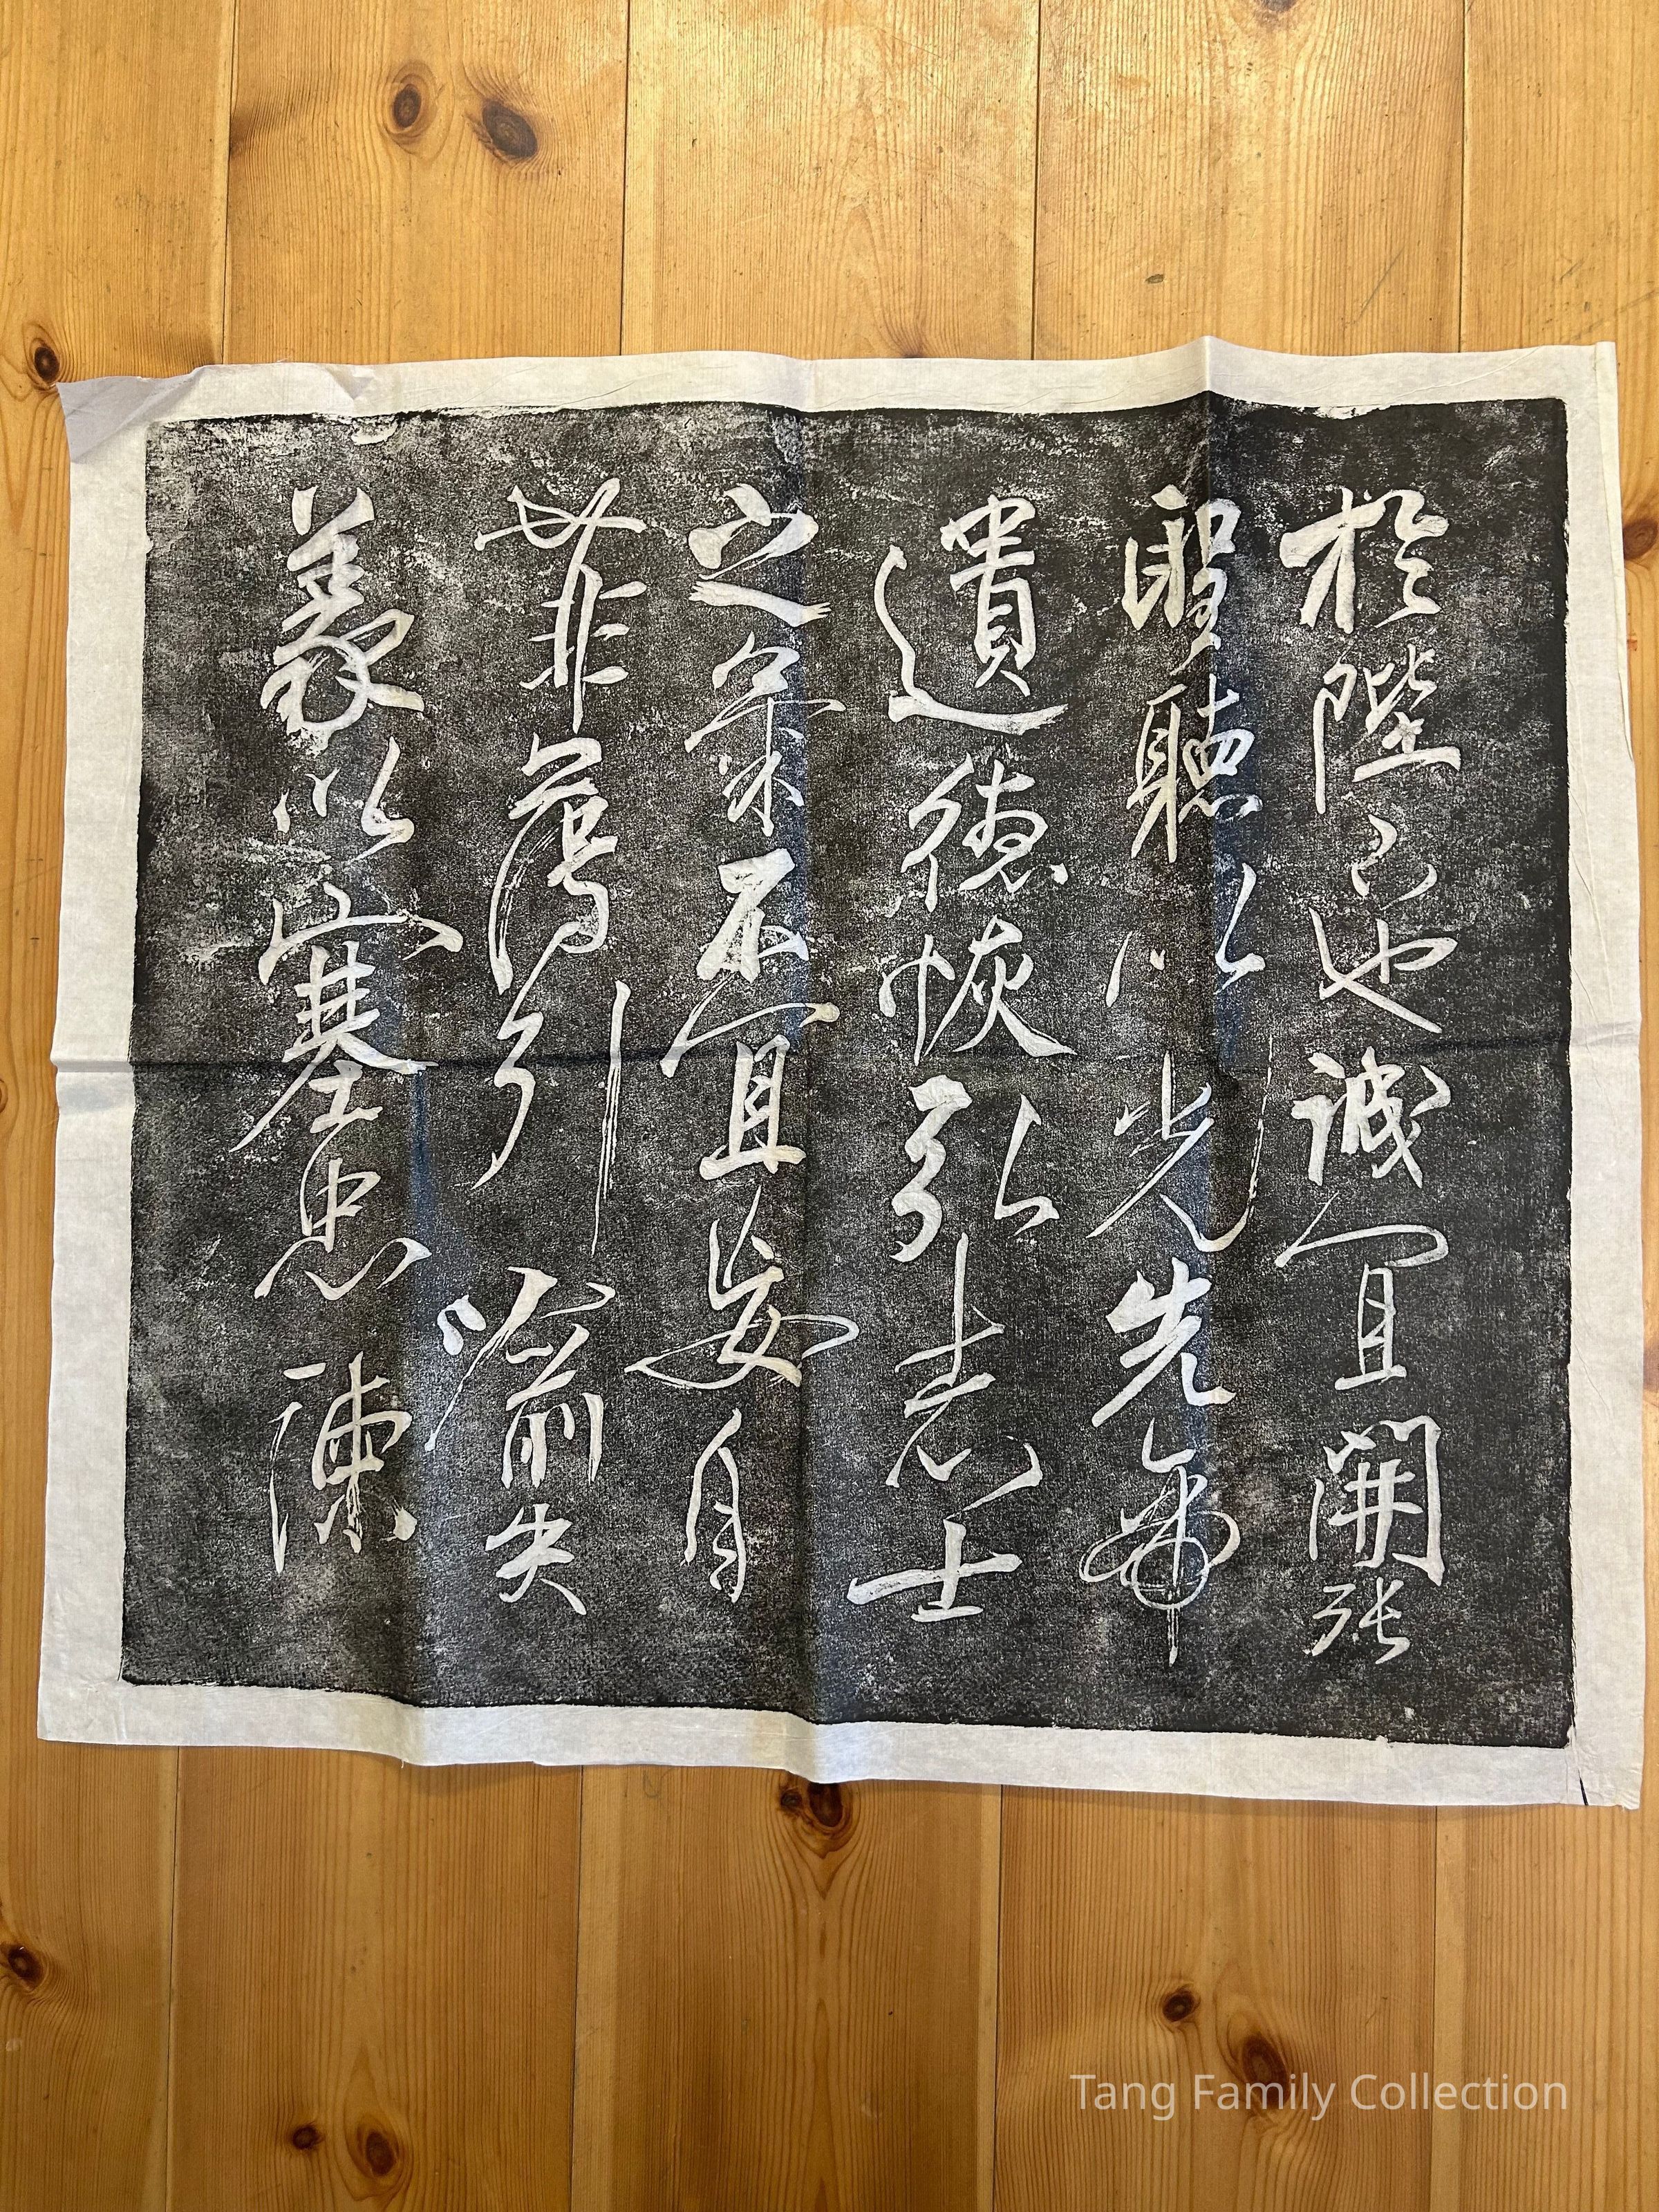 於陛下也誠宜開張
聖聽以光先帝
遺德恢弘志士
之氣不宜妄自
菲薄引喻失
義以塞忠諫
Tang Family Collection